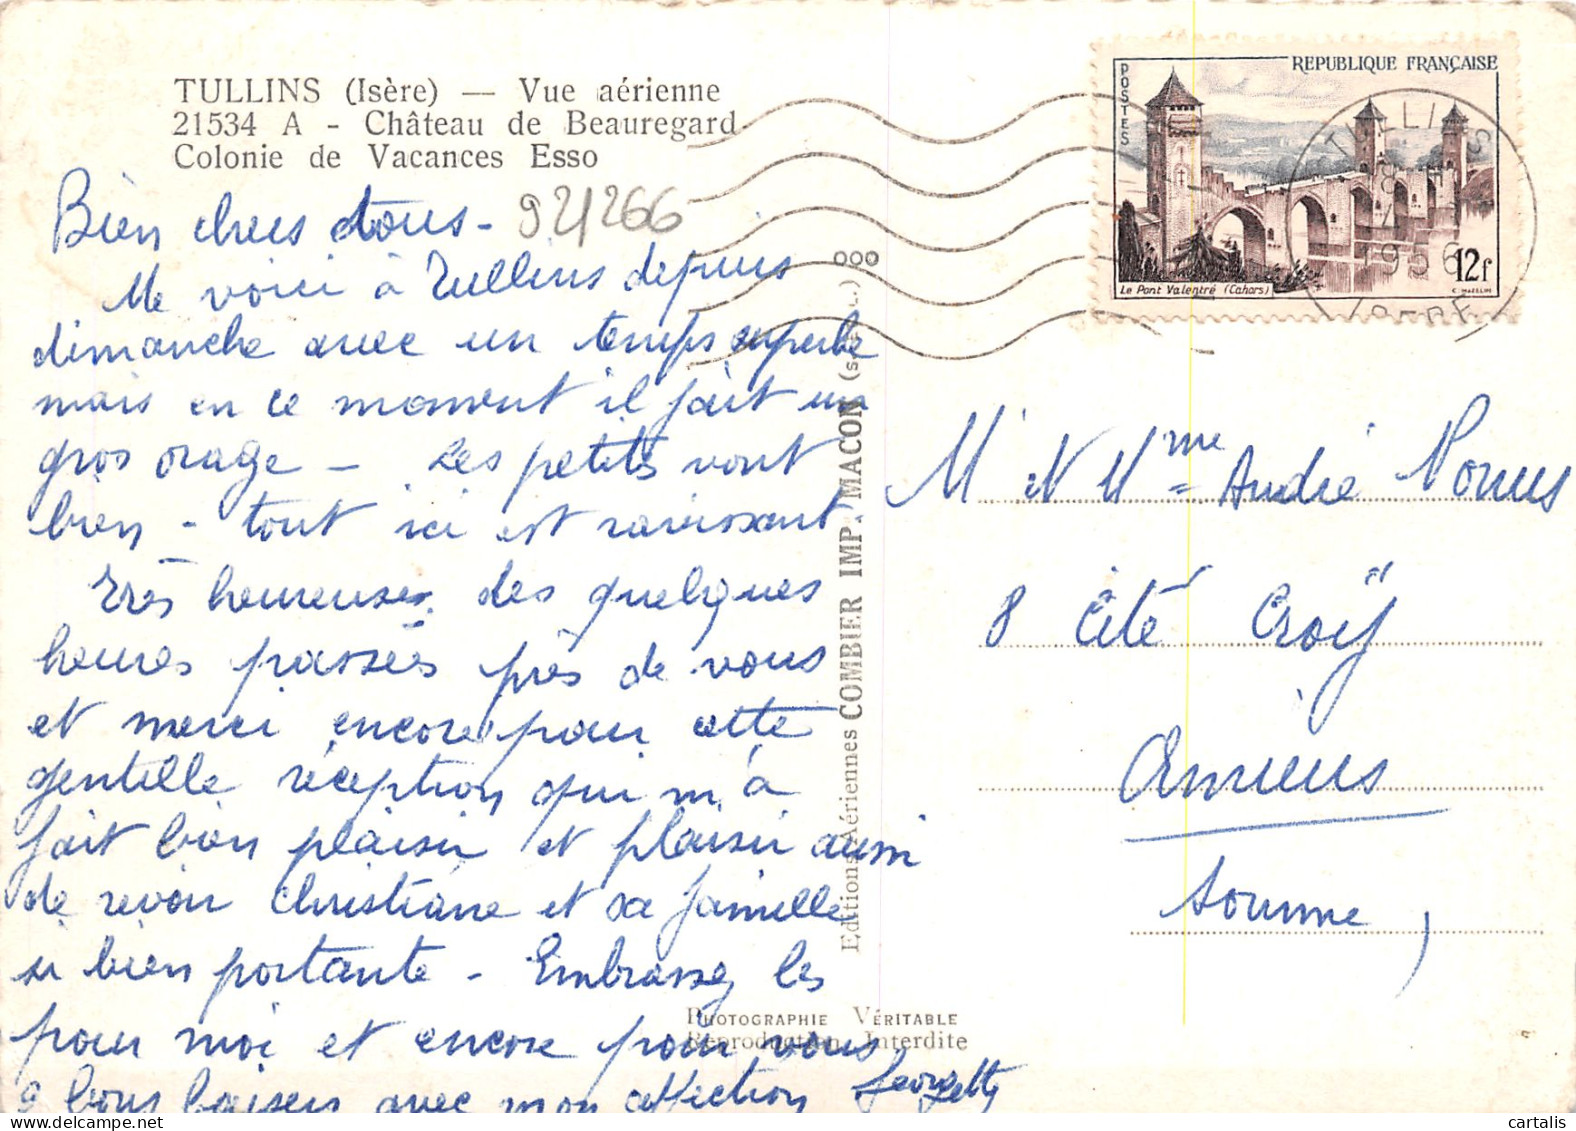 TULLINS (Isère) — Vue aérienne
21534 A - Château de Beauregard
Colonie de Vacances Esso
921266
Bien chers tous -
Me voici à Tullins depuis
dimanche avec un temps superbe
mais en ce moment il fait un
gros orage - Les petits vont
bien - tout ici est ravissant
Très heureuses des quelques
heures passées près de vous
et merci encore pour cette
gentille réception qui m'a
fait bien plaisir et plaisir aussi
de revoir Christiane et sa famille
si bien portante - Embrassez les
pour moi et encore pour vous
à tous baisers avec mon affection Georgette
Editions Aériennes COMBIER IMP. MACON
PHOTOGRAPHIE VÉRITABLE
Reproduction Interdite
REPUBLIQUE FRANÇAISE
POSTES
Le Pont Valentré (Cahors)
12f
TULLINS
1956
ISERE
M et Mme André
8 Cité Croÿ
Amiens
Somme
cartalis